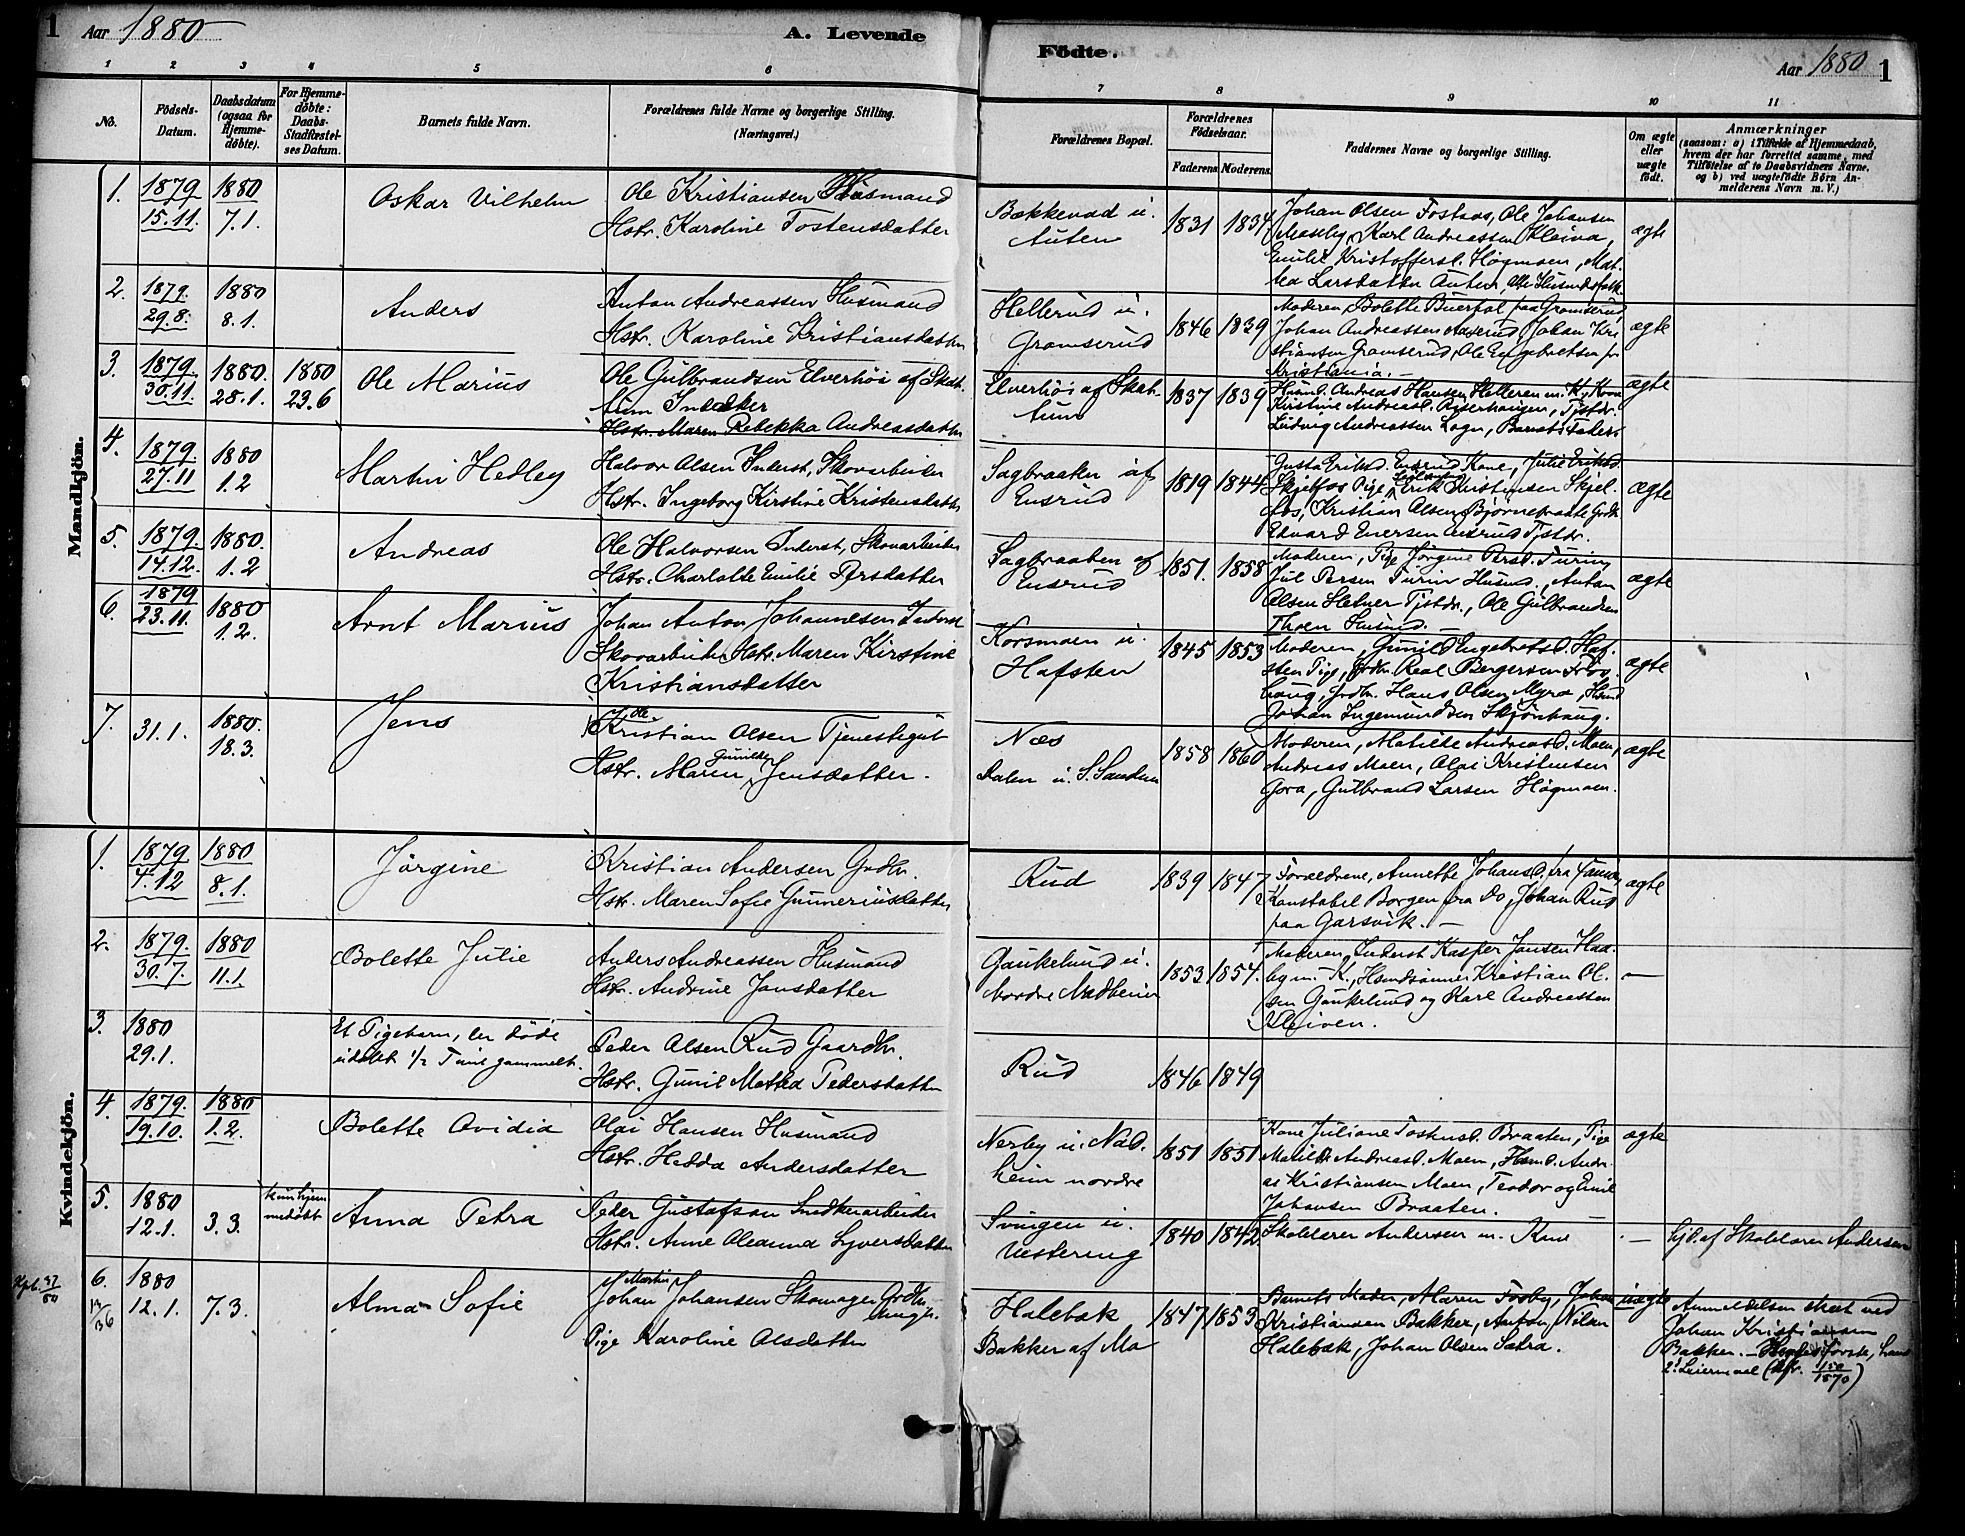 1 Aar 1880 A. Levende
Födte. Aar 1880 1
1 2 3 4 5 6
7 8 9 10 11
No.
Födsels-
Datum.
Daabsdatum
(ogsaa for
Hjemme-
döbte).
For Hjemme-
döbte:
Daabs-
Stadfæstel-
ses Datum.
Barnets fulde Navn.
Forældrenes fulde Navne og borgerlige Stilling.
(Næringsvei.)
Forældrenes Bopæl.
Forældrenes
Födselsaar.
Faderens. Moderens.
Faddernes Navne og borgerlige Stilling.
Om ægte
eller
uægte
födt.
Anmærkninger
(saasom: a) i Tilfælde af Hjemmedaab,
hvem der har forrettet samme, med
Tilföielse af to Daabsvidners Navne,
og b) ved uægtefödte Börn An-
melderens Navn m. V.)
Mandkjön.
1. 1879 15.11. 1880 7.1. Oskar Vilhelm
Ole Kristiansen Husmand
Hstr. Karoline Tostensdatter
Bækkevad u.
Auten
1831 1834
Johan Olsen Fostads, Ole Johansen
Moseby, Karl Andreassen Kleiva,
Emilie Kristoffersd. Høgmoen, Mat-
hea Larsdatter Auten, alle Husmdsfolk
ægte
2. 1879. 29.8. 1880 8.1. Anders
Anton Andreassen Husmand
Hstr. Karoline Kristiansdatter
Hellerud u.
Gramserud
1846 1839
Moderen, Bolette paa Gramserud,
Johan Andreassen Aaserud, Johan Kri-
stiansen Gramserud, Ole Engebretsen fr
Kristiania. -
ægte
3. 1879. 30.11. 1880. 28.1. 1880 23.6 Ole Marius
Ole Gulbrandsen Elverhöi af Skat-
tum
Hstr. Maren Rebekka Andreasdatter
Elverhöi af Skat-
tum
1837 1839
Husmd. Andreas Hansen Helleren m. K., Kone
Kristine Andreasd. Riserhaugen, Tjstdr.
Ludvig Andreassen Logn, Barnets Fader
ægte
4. 1879. 27.11 1880 1.2 Martin Hedley
Halvor Olsen Inderst, Skovarbeider
Hstr. Ingeborg Kirstine Kristensdatter
Sagbraaten af
Ensrud
1819 1844
Gusta Eriksd. Ensrud Kone, Julie Eriksd.
Skjelfos Pige, Erik Kristensen Skjel-
fos, Kristian Olsen Bjørnebraate Grdbr.
Edvard Evensen Ensrud Tjstdr.
ægte
5. 1879. 14.12. 1880. 1.2 Andreas
Ole Halvorsen Inderst, Skovarbeider
Hstr. Charlotte Emilie Persdatter
Sagbraaten af
Ensrud
1851. 1858
Moderen, Pige Jørgine Persd. Turin,
Jul Persen Turin Husmd., Anton
Olsen Tjstdr., Ole Gulbrandsen
Thoen Husmd.
ægte
6. 1879 23.11. 1880 1.2. Arnt Marius
Johan Anton Johannesen Inderst
Skovarbeider Hstr. Maren Kirstine
Kristiansdatter
Korsmoen u.
Hafsten
1845 1853
Moderen, Gunild Engebretsd. Haf-
sten Pige, Grdbr. Real Bergersen
haug, Grdbr. Hans Olsen Myra, Husmd
Johan Ingemundsen Skjönhaug.
ægte
7. 31.1. 1880. 18.3. Jens
Kristian Ole Olsen Tjenestegut
Hstr. Maren Gunilde Jensdatter.
Næs
Dalen u. S. Sandum
1858 1860
Moderen, Matilde Andreasd. Moen,
Andreas Moen, Olai Kristensen
Gora, Gulbrand Larsen Högmoen.
ægte
Kvindekjön.
1. 1879 4.12 1880 8.1. Jörgine
Kristian Andersen Grdbr.
Hstr. Maren Sofie Gunneriusdatter
Rud
1839 1847
Forældrene, Annette Johansd. fra
Konstabel Borgen fra do, Johan Rud
paa Garsvik. -
ægte
2. 1879. 30.7. 1880 11.1. Bolette Julie
Anders Andreassen Husmand
Hstr. Andrine Jansdatter
Gaukelund u.
Nordre Nadheim
1853 1854.
Moderen, Inderst Kasper Jansen Haa-
by m. K., Husmdsönner Kristian Ol-
sen Gaukelund og Karl Andreassen
Kleiven.
-
3. 1880 29.1. Et Pigebarn, der döde
udöbt 1/2 Time gammelt.
Peder Olsen Rud Gaardbr.
Hstr. Gunil Mathea Pedersdatter
Rud
1846 1849
4. 1879. 19.10. 1880 1.2. Bolette Ovidia
Olai Hansen Husmand
Hstr. Hedda Andersdatter
Nerby u. Nad-
heim nordre
1851 1851
Kone Juliane Tostensd. Braaten, Pige
Matilde Andreasd. Moen, Husmd. Andre-
as Kristiansen Moen, Teodor og Emil
Johansen Braaten.
ægte
5. 1880 12.1. 3.3. kun hjem
medöbt Anna Petra
Peder Gustafson Snedkerarbeider
Hstr. Anne Syversdatter
Svingen u.
Vestering
1840 1842
Skolelærer Andersen m. Kone
-
hjd. af Skolelærer Andersen
Kpt. 37/80
6. 13/36 1880 12.1. 7.3. Alma Sofie
Johan Martin Johansen Skomager Grdbr.
Ungk.
Pige Karoline Olsdatter
Halebæk
Bakker af Mo
1847 1853
Barnets Moder, Maren Fosby, Johan
Kristiansen Bakker, Anton Nilsen
Halebæk, Johan Olsen Sætra.
uægte
Anmeldelsen skeet ved
Johan Kristiansen
Bakken. - Hendes förste, hans
2. Leiermaal (kfr. 150/1870)